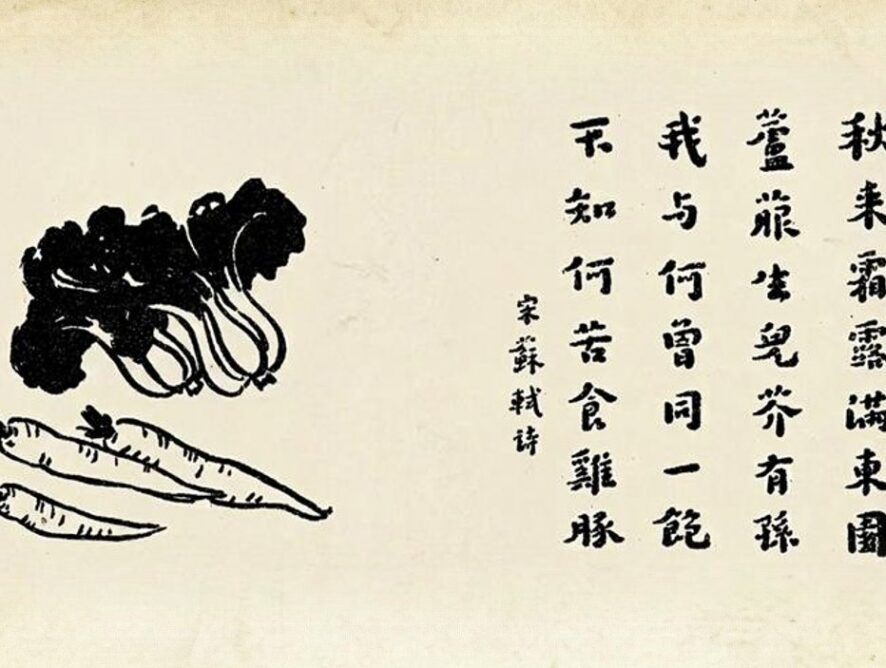 秋来霜露滿東園
蘆菔生兒芥有孫
我与何曾同一飽
不知何苦食雞豚
宋蘇軾詩